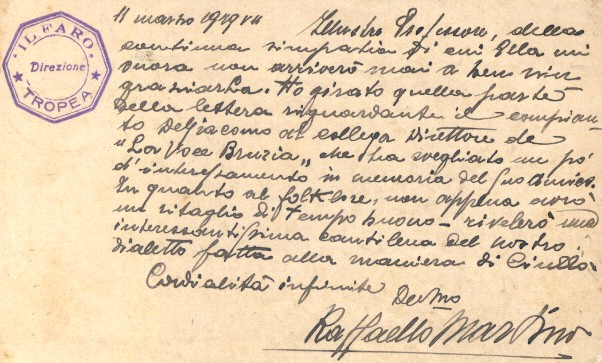 IL FARO
Direzione
TROPEA
11 marzo 1929 VII
Illustre Professore, della
continua simpatia di cui Ella mi
onora non arriverò mai a ben rin
graziarLa. Ho girato quella parte
della lettera riguardante il compian
to DeGiacomo al collega Direttore de
"La Voce Bruzia" che ha svegliato un pó
d'interessamento in memoria del Suo amico.
In quanto al folklore, non appena avrò
un ritaglio di tempo buono - rivelerò una
interessantissima cantilena del nostro
dialetto fatta alla maniera di
Cordialità infinite
Dev/mo
Raffaello Martino